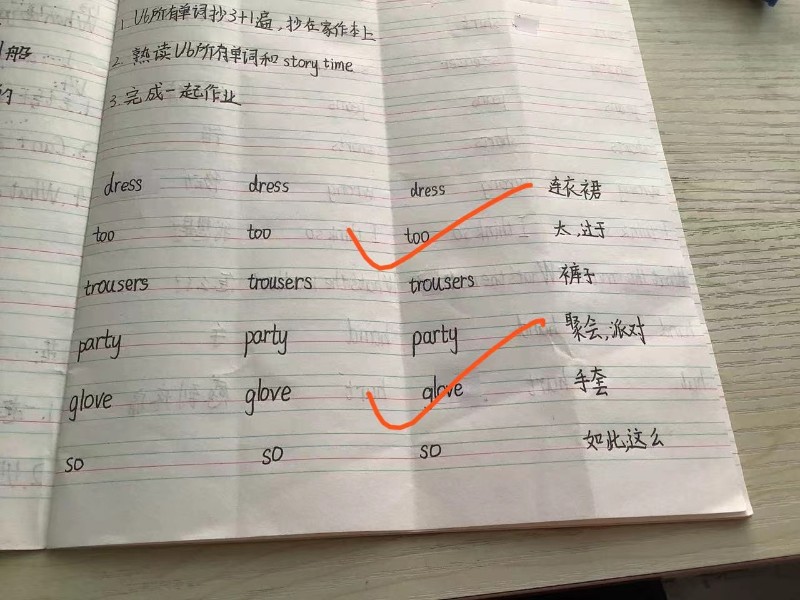 1. U6所有单词抄3+1遍,抄在家作本上
2. 熟读U6所有单词和 story time
3. 完成一起作业
dress dress dress 连衣裙
too too too 太,过于
trousers trousers trousers 裤子
party party party 聚会,派对
glove glove glove 手套
so so so 如此,这么